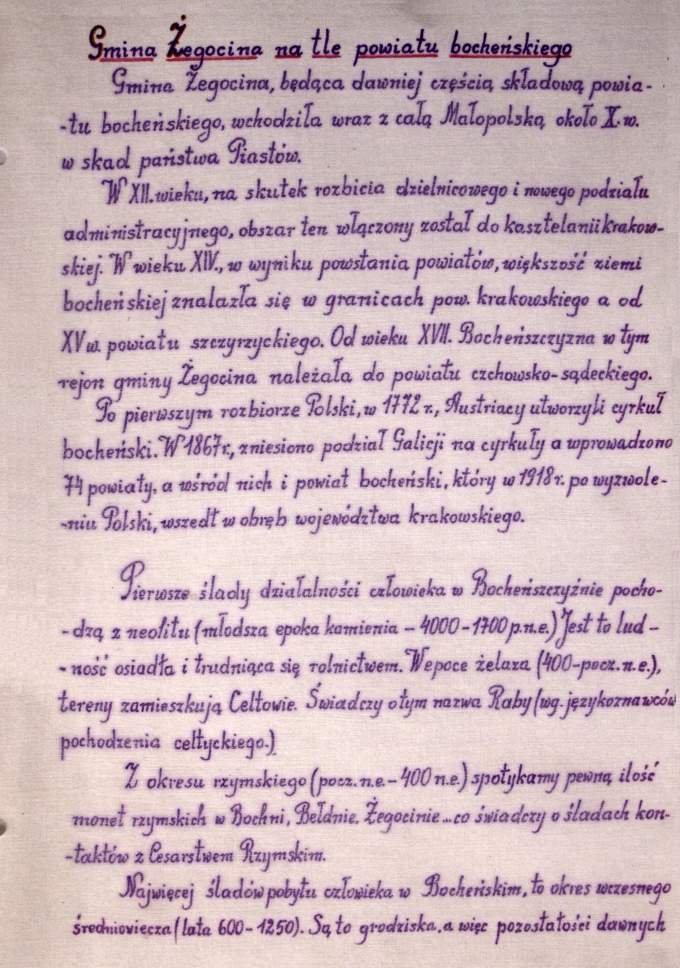 Gmina Żegocina na tle powiatu bocheńskiego
Gmina Żegocina, będąca dawniej częścią składową powia-
-tu bocheńskiego, wchodziła wraz z całą Małopolską około X.w.
w skad państwa Piastów.
W XII.wieku, na skutek rozbicia dzielnicowego i nowego podziału
administracyjnego, obszar ten włączony został do kasztelanii krakow-
skiej. W wieku XIV., w wyniku powstania powiatów, większość ziemi
bocheńskiej znalazła się w granicach pow. krakowskiego a od
XV w. powiatu szczyrzyckiego. Od wieku XVII. Bocheńszczyzna w tym
rejon gminy Żegocina należała do powiatu czchowsko-sądeckiego.
Po pierwszym rozbiorze Polski, w 1772 r., Austriacy utworzyli cyrkuł
bocheński. W 1867r., zniesiono podział Galicji na cyrkuły a wprowadzono
74 powiaty, a wśród nich i powiat bocheński, który w 1918 r. po wyzwole-
-niu Polski, wszedł w obręb województwa krakowskiego.
Pierwsze ślady działalności człowieka w Bocheńszczyźnie pocho-
-dzą z neolitu (młodsza epoka kamienia - 4000-1700 p.n.e.) Jest to lud-
-ność osiadła i trudniąca się rolnictwem. W epoce żelaza (400-pocz.n.e.),
tereny zamieszkują Celtowie. Świadczy o tym nazwa Raby (wg. językoznawców
pochodzenia celtyckiego.)
Z okresu rzymskiego (pocz.n.e.-400 n.e.) spotykamy pewną ilość
monet rzymskich w Bochni, Bełdnie, Żegocinie...co świadczy o śladach kon-
-taktów z Cesarstwem Rzymskim.
Najwięcej śladów pobytu człowieka w Bocheńskim, to okres wczesnego
średniowiecza (lata 600-1250). Są to grodziska, a więc pozostałości dawnych